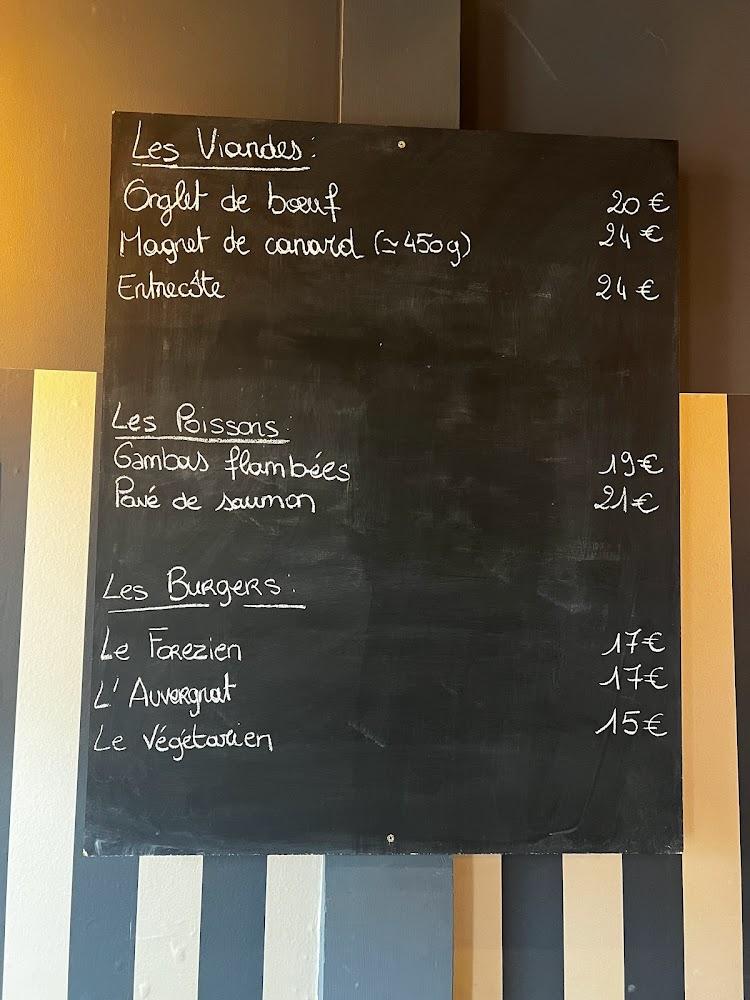 Les Viandes :
Onglet de bœuf 20 €
Magret de canard (≃ 450g) 24 €
Entrecôte 24 €
Les Poissons :
Gambas flambées 19 €
Pavé de saumon 21 €
Les Burgers :
Le Forezien 17 €
L'Auvergnat 17 €
Le Végétarien 15 €